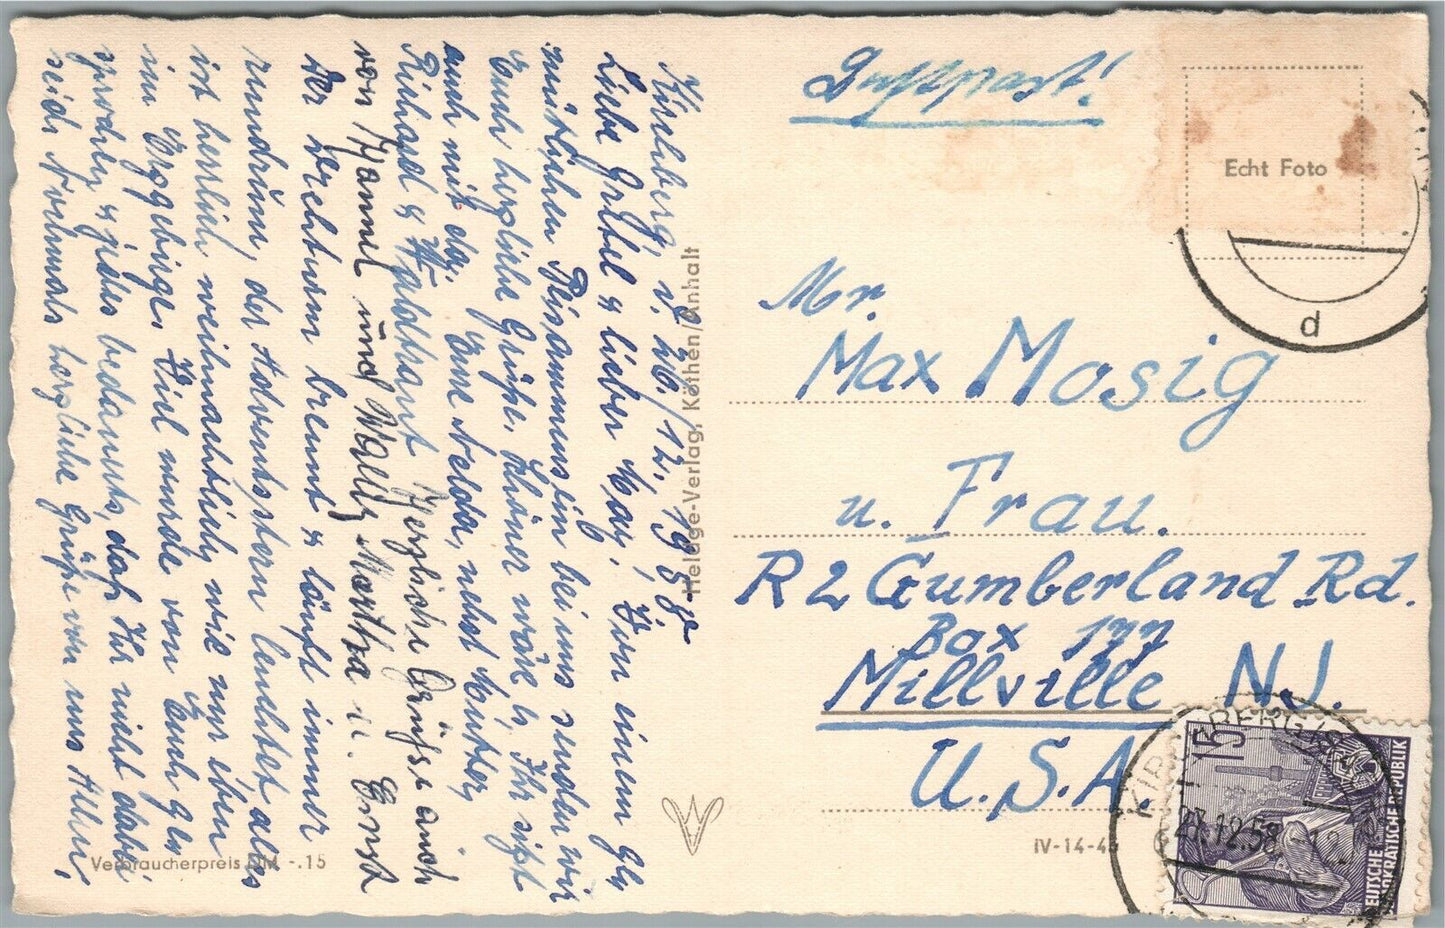 Kirchberg, d. 26./12. 1958.
Liebe Gretel & lieber Max! Von einem ge
mütlichen Beisammensein bei uns senden wir
Euch herzliche Grüße. Schöner wäre es Ihr seid
auch mit da. Eure Nelda, nebst Mutter,
Richard & Waldtraut Herzliche Grüße auch
von Hannel und Willy Martha u. Ernst
Der Reichtum brennt & läuft immer
rundrum, der Adventsstern leuchtet alles
ist herrlich weihnachtlich wie nur eben
im Erzgebirge. Viel wurde von Euch ge
sprochen & jedes bedauerts, daß Ihr nicht dabei
seid. Nochmals herzliche Grüße von uns Allen.
Verbraucherpreis DM -.15
Heldge-Verlag, Köthen/Anhalt
Luftpost!
Echt Foto
d
Mr.
Max Mosig
u. Frau.
R 2 Cumberland Rd.
Box 177
Millville N.J.
U.S.A.
IV-14-45
KIRCHBERG
27.12.58
15
DEUTSCHE
DEMOKRATISCHE REPUBLIK